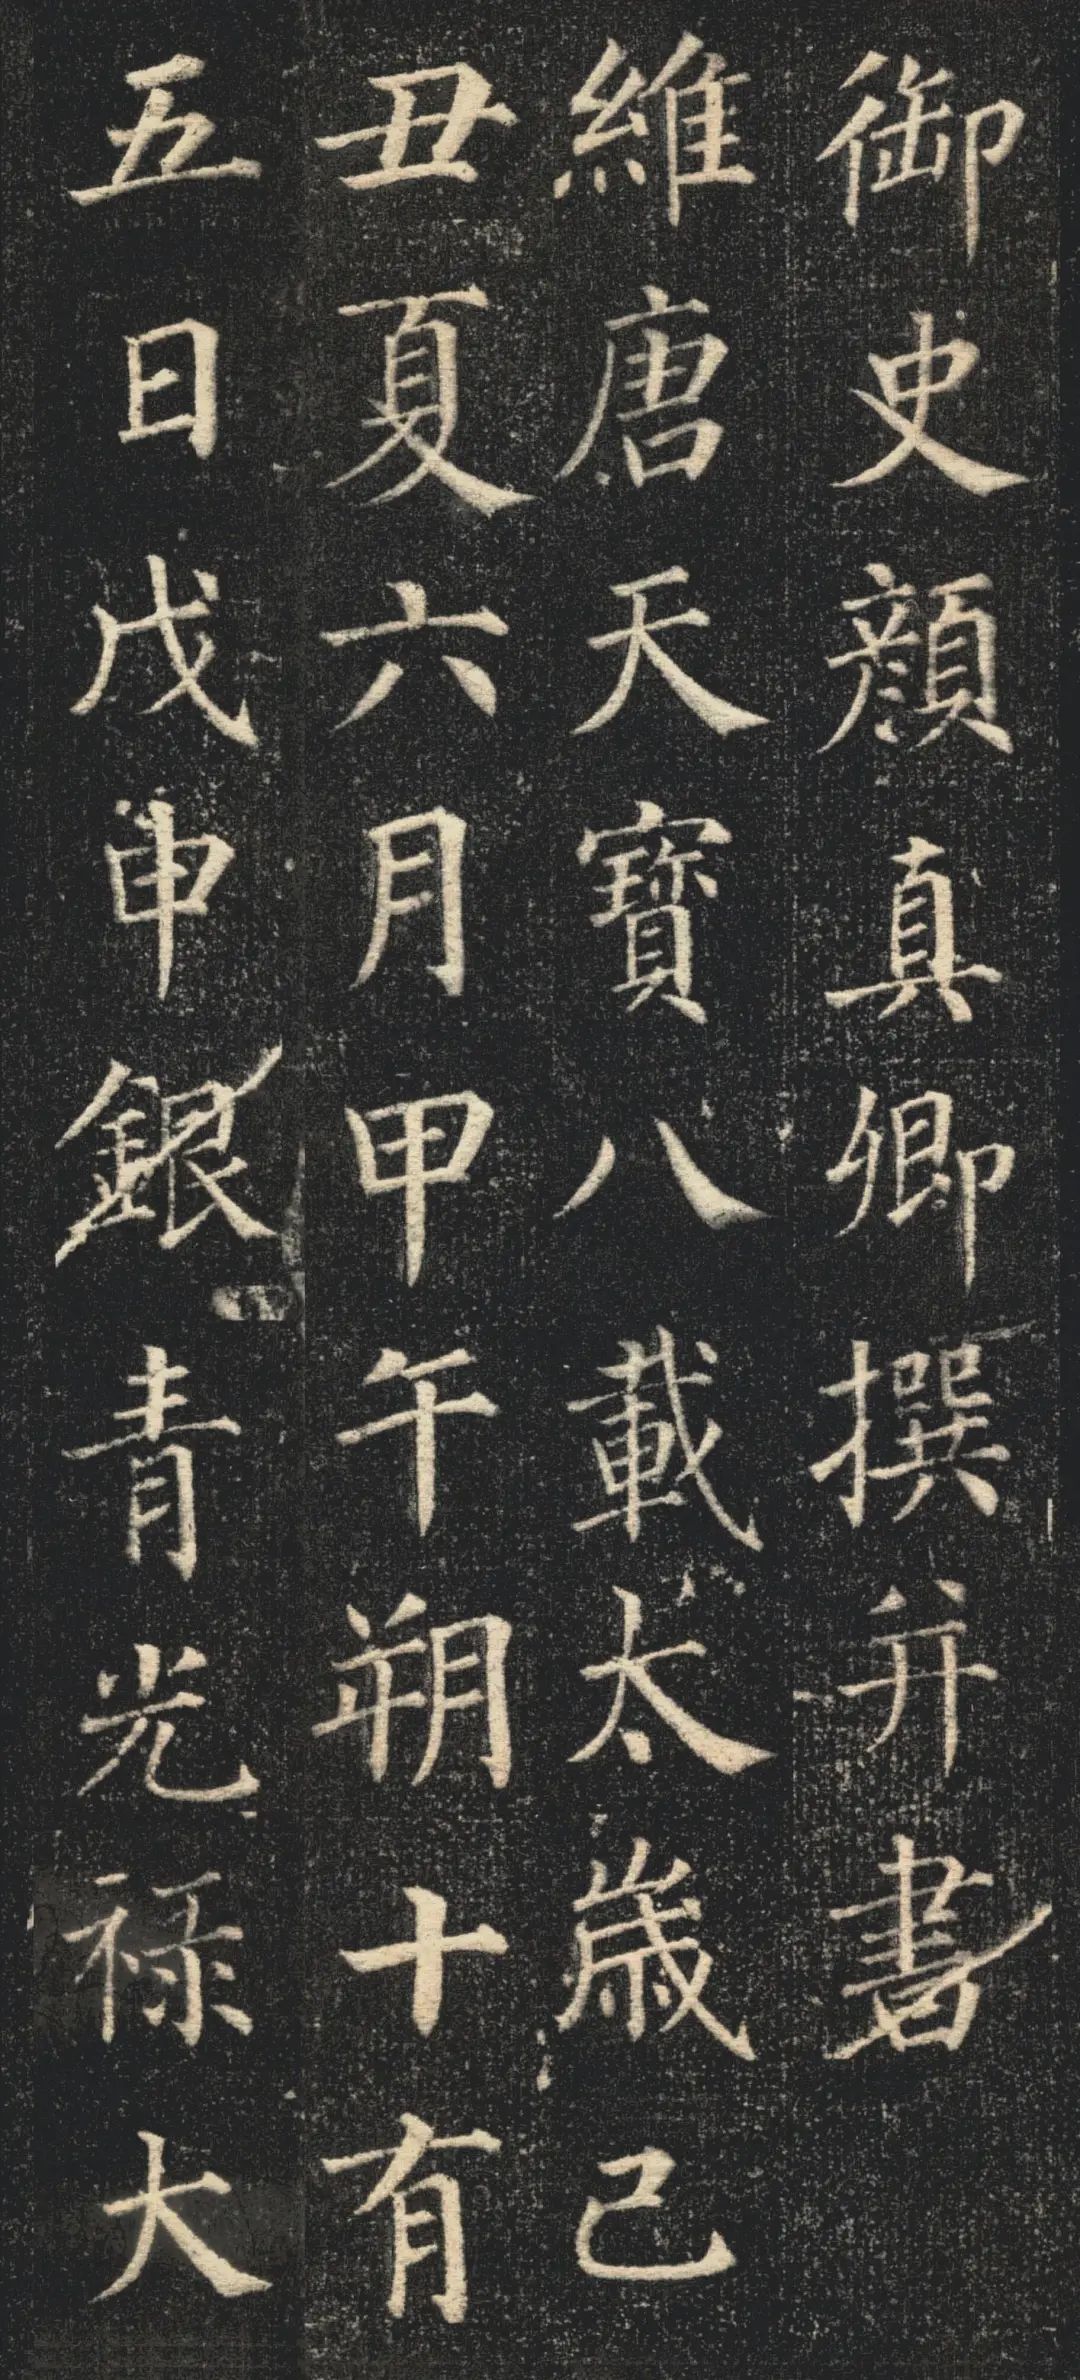 御史顔真卿撰并書
維唐天寶八載太歳己
丑夏六月甲午朔十有
五日戊申銀青光禄大